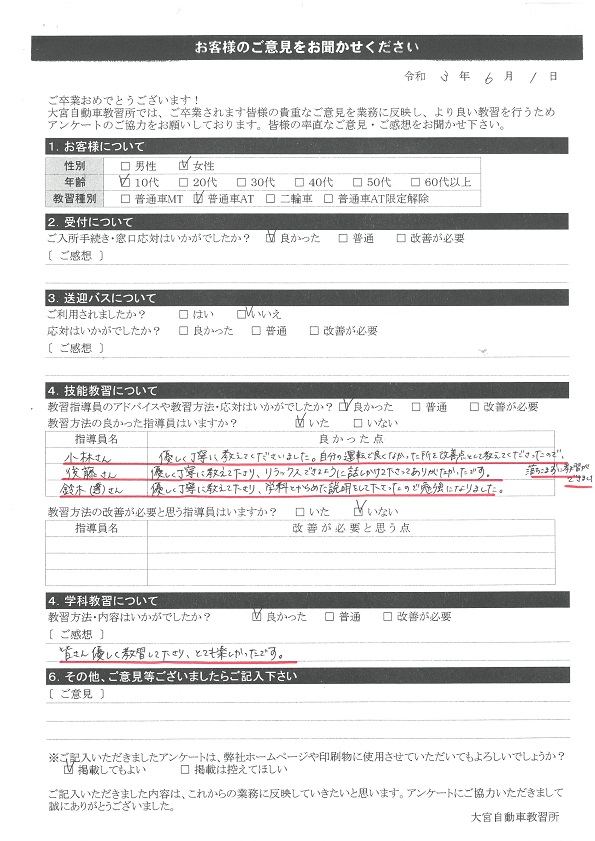 お客様のご意見をお聞かせください
令和 3 年 6 月 1 日
ご卒業おめでとうございます！
大宮自動車教習所では、ご卒業されます皆様の貴重なご意見を業務に反映し、より良い教習を行うため
アンケートのご協力をお願いしております。皆様の率直なご意見・ご感想をお聞かせ下さい。
1. お客様について
性別 □ 男性 ☑ 女性
年齢 ☑ 10代 □ 20代 □ 30代 □ 40代 □ 50代 □ 60代以上
教習種別 □ 普通車MT ☑ 普通車AT □ 二輪車 □ 普通車AT限定解除
2. 受付について
ご入所手続き・窓口応対はいかがでしたか？ ☑ 良かった □ 普通 □ 改善が必要
〔 ご感想 〕
3. 送迎バスについて
ご利用されましたか？ □ はい ☑ いいえ
応対はいかがでしたか？ □ 良かった □ 普通 □ 改善が必要
〔 ご感想 〕
4. 技能教習について
教習指導員のアドバイスや教習方法・応対はいかがでしたか？ ☑ 良かった □ 普通 □ 改善が必要
教習方法の良かった指導員はいますか？ ☑ いた □ いない
指導員名 良かった点
小林さん 優しく丁寧に教えてくださいました。自分の運転で良くなかった所を改善点として教えてくださったので、
落ちこまずに教習ができました
後藤さん 優しく丁寧に教えてくださり、リラックスできるように話しかけて下さってありがたかったです。
鈴木 さん 優しく丁寧に教えて下さり、学科とからめた説明をして下さったので勉強になりました。
教習方法の改善が必要と思う指導員はいますか？ □ いた ☑ いない
指導員名 改善が必要と思う点
4. 学科教習について
教習方法・内容はいかがでしたか？ ☑ 良かった □ 普通 □ 改善が必要
〔 ご感想 〕
皆さん優しく教習して下さり、とても楽しかったです。
6. その他、ご意見等ございましたらご記入下さい
〔 ご意見 〕
※ご記入いただきましたアンケートは、弊社ホームページや印刷物に使用させていただいてもよろしいでしょうか？
☑ 掲載してもよい □ 掲載は控えてほしい
ご記入いただきました内容は、これからの業務に反映していきたいと思います。アンケートにご協力いただきまして
誠にありがとうございました。
大宮自動車教習所